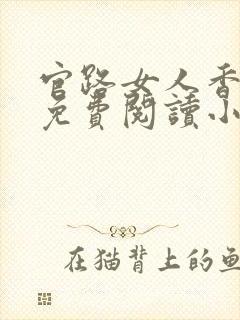 官路女人香
免費閱讀小
在猫背上的鱼